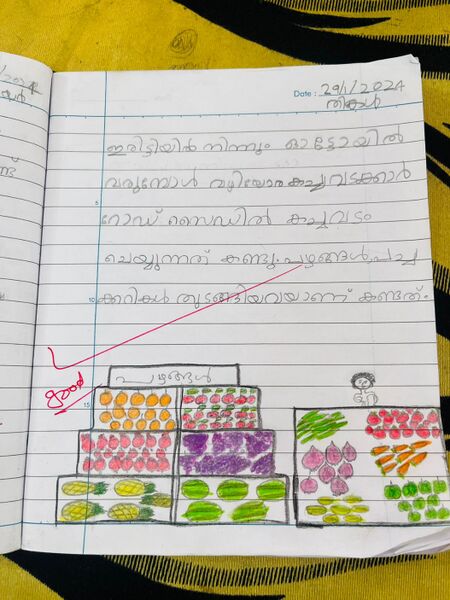 Date : 29/1/2024
തിങ്കൾ
ഇരിട്ടിയിൽ നിന്നും ഓട്ടോയിൽ
വരുമ്പോൾ വഴിയോര കച്ചവടക്കാർ
റോഡ് സൈഡിൽ കച്ചവടം
ചെയ്യുന്നത് കണ്ടു. പഴങ്ങൾ, പച്ച
ക്കറികൾ തുടങ്ങിയവയാണ് കണ്ടത്.
good
പഴങ്ങൾ